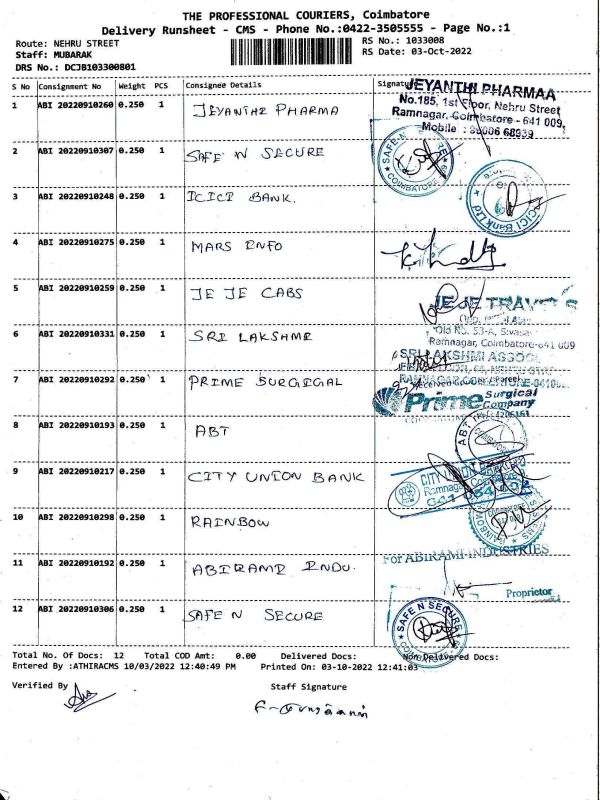 THE PROFESSIONAL COURIERS, Coimbatore
Delivery Runsheet - CMS - Phone No.:0422-3505555 - Page No.:1
Route: NEHRU STREET RS No.: 1033008
Staff: MUBARAK RS Date: 03-Oct-2022
DRS No.: DCJB103300801
S No Consignment No Weight PCS Consignee Details Signature
1 ABI 20220910260 0.250 1 JEYANTHI PHARMA
JEYANTHI PHARMAA
No.185, 1st Floor, Nehru Street
Ramnagar, Coimbatore - 641 009,
Mobile :
2 ABI 20220910307 0.250 1 SAFE N SECURE
SAFE N SECURE
COIMBATORE
3 ABI 20220910248 0.250 1 ICICI BANK.
ICICI Bank Ltd
4 ABI 20220910275 0.250 1 MARS INFO
5 ABI 20220910259 0.250 1 JE JE CABS
JE JE TRAVELS
Old No. 53-A,
Ramnagar, Coimbatore-641 009
6 ABI 20220910331 0.250 1 SRI LAKSHMI
SRI LAKSHMI ASSOC
7 ABI 20220910292 0.250 1 PRIME SURGIGAL
Prime Surgical
Company
8 ABI 20220910193 0.250 1 ABT
ABT
9 ABI 20220910217 0.250 1 CITY UNION BANK
CITY UNION
Ramnagar
10 ABI 20220910298 0.250 1 RAINBOW
RAINBOW
11 ABI 20220910192 0.250 1 ABIRAMI INDU.
For ABIRAMI INDUSTRIES
Proprietor
12 ABI 20220910306 0.250 1 SAFE N SECURE
SAFE N SECURE
Total No. Of Docs: 12 Total COD Amt: 0.00 Delivered Docs: Non Delivered Docs:
Entered By :ATHIRACMS 10/03/2022 12:40:49 PM Printed On: 03-10-2022 12:41:03
Verified By Staff Signature